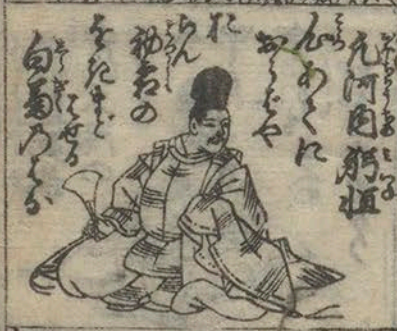 凡河内躬恒
心あてに
おらばや
お
らん
初霜の
をきまど
はせる
白菊のはな